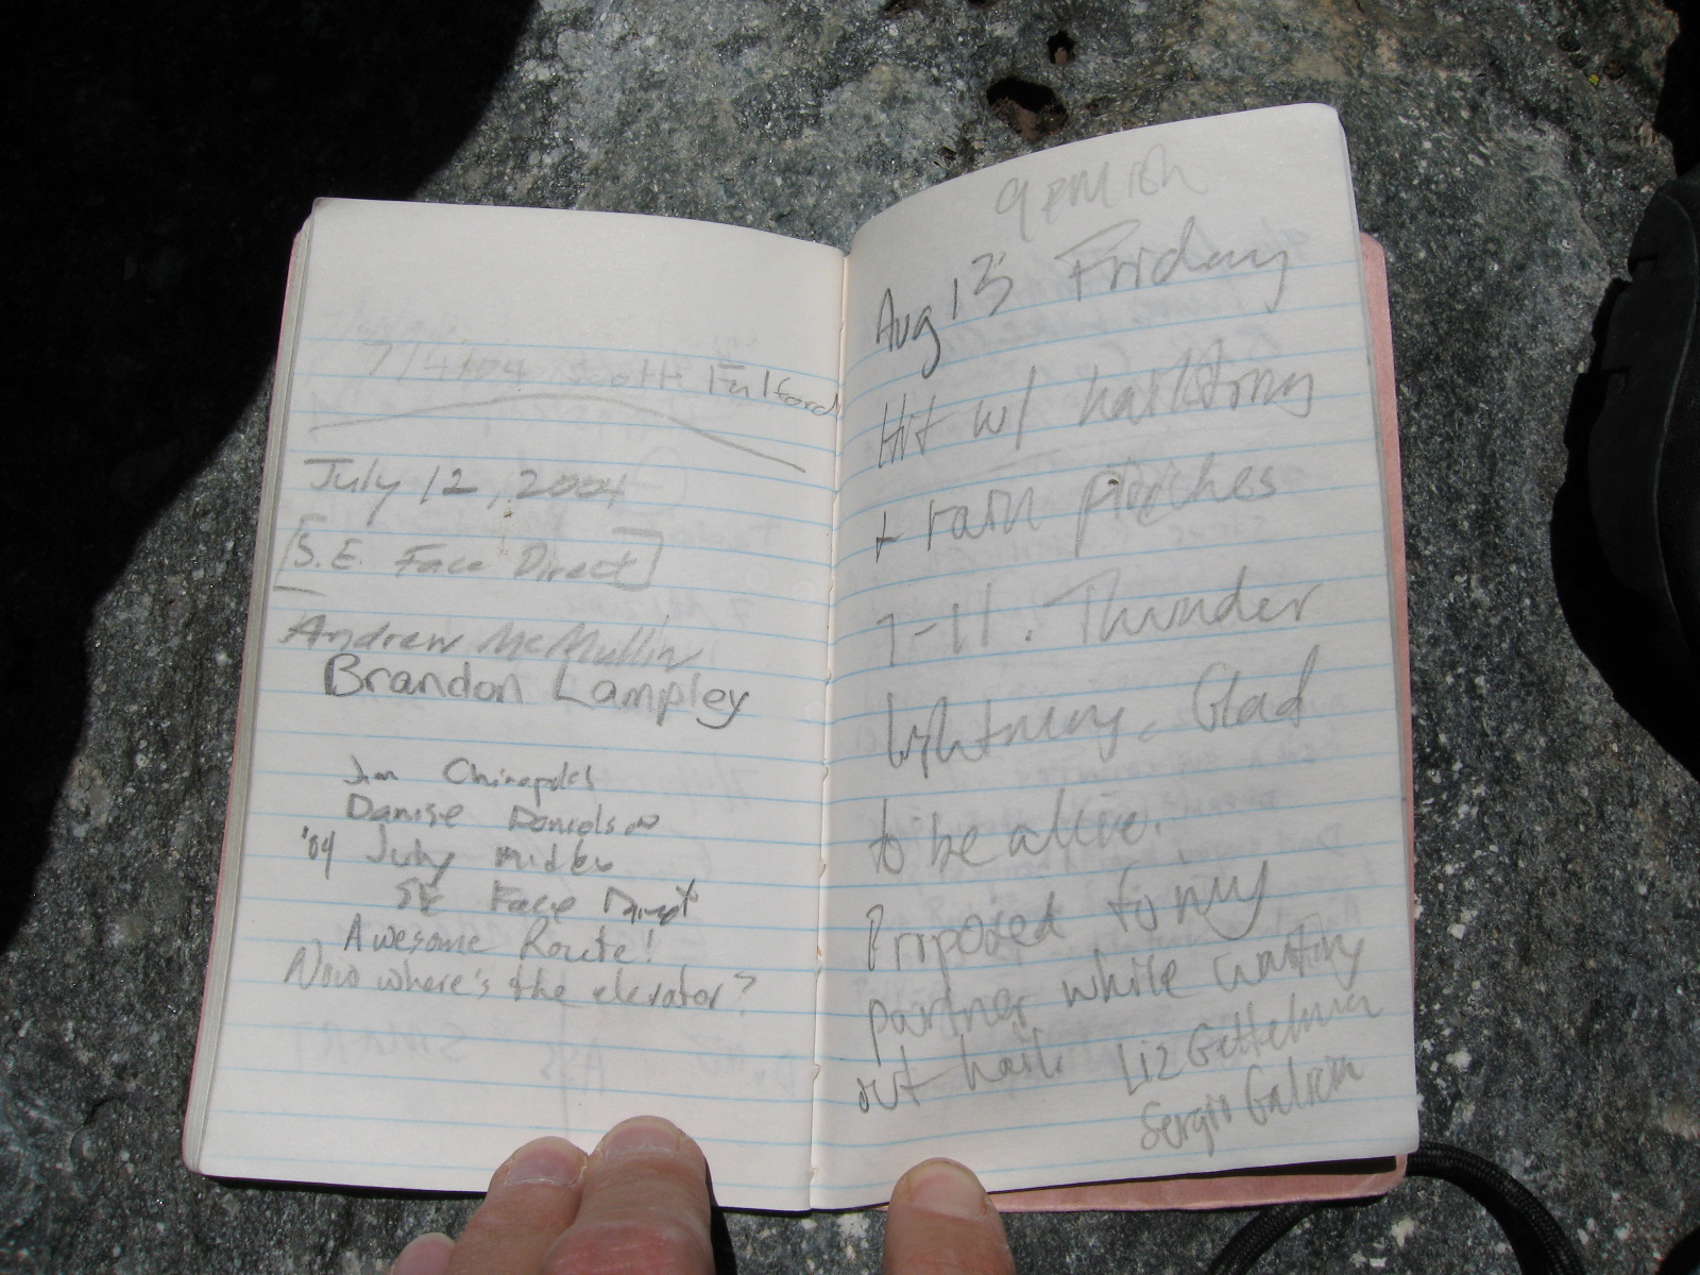 7/4/04 Scott Fulford
July 12, 2004
S.E. Face Direct
Andrew McMullin
Brandon Lampley
Jim
Danise Danielson
'04 July
SE Face Direct
Awesome Route!
Now where's the elevator?
9 pm ish
Aug 13 Friday
Hit w/ hailstorm
+ rain pitches
7-11. Thunder
lightning. Glad
to be alive.
Proposed to my
partner while waiting
out hail. Liz Gettelman
Sergio